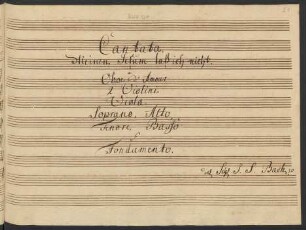 Cantata
Meinen Jesum laß ich nicht.
Oboe d'Amore
2 Violini
Viola
Soprano, Alto,
Tenore Basso
e
Fondamento.
del Sigr J. S. Bach